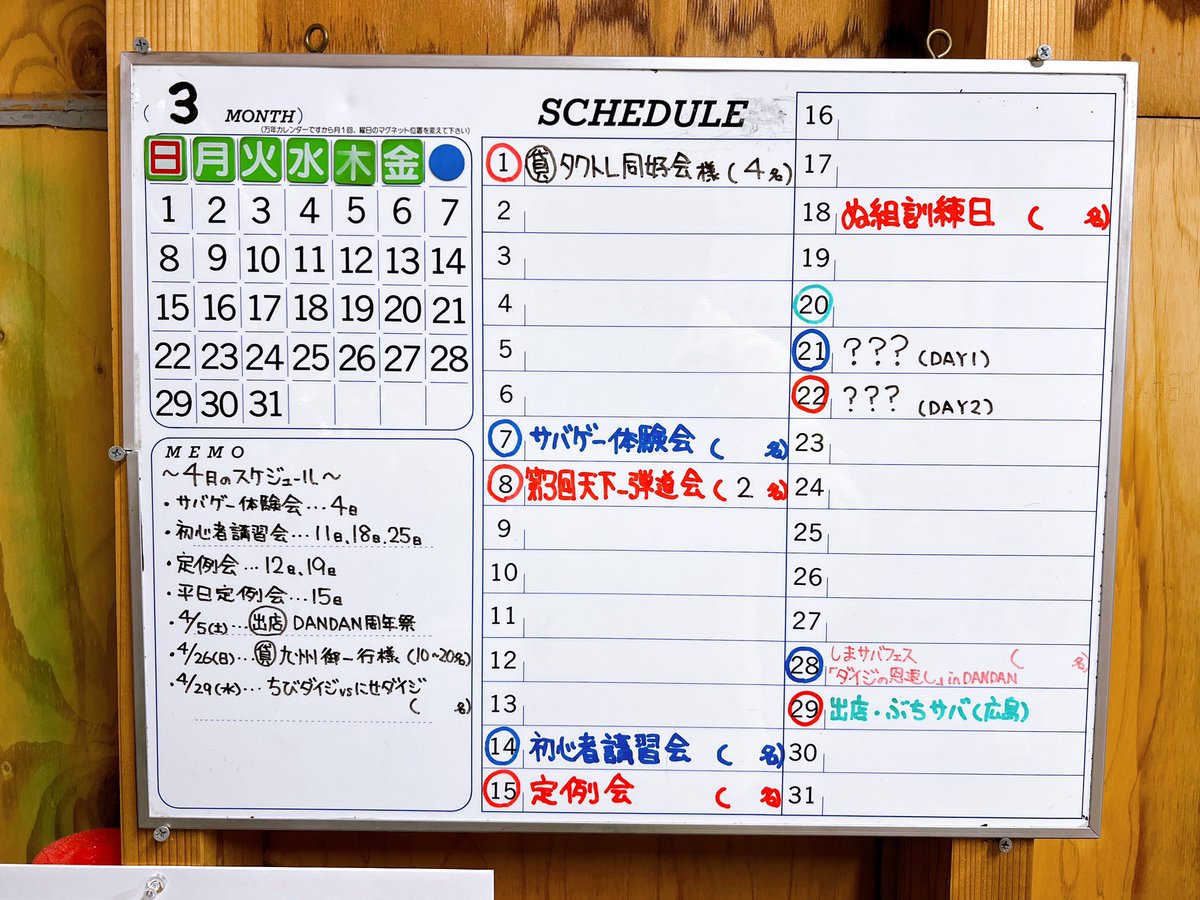 (3 MONTH)
(万年カレンダーですから月1回、曜日のマグネット位置を変えて下さい)
日 月 火 水 木 金
1 2 3 4 5 6 7
8 9 10 11 12 13 14
15 16 17 18 19 20 21
22 23 24 25 26 27 28
29 30 31
MEMO
〜4月のスケジュール〜
・サバゲー体験会…4日
・初心者講習会…11日、18日、25日
・定例会…12日、19日
・平日定例会…15日
・4/5(土)…出店 DANDAN周年祭
・4/26(日)…貸 九州御一行様(10~20名)
・4/29(水)…ちびダイジvsにせダイジ
( 名)
SCHEDULE
1 貸 タクトレ同好会様(4名)
2
3
4
5
6
7 サバゲー体験会( 名)
8 第3回天下一弾道会(2名)
9
10
11
12
13
14 初心者講習会( 名)
15 定例会( 名)
16
17
18 ぬ組訓練日( 名)
19
20
21 ???(DAY1)
22 ???(DAY2)
23
24
25
26
27
28 しまサバフェス( 名)
「ダイジの恩返し」in DANDAN
29 出店・ぶちサバ(広島)
30
31